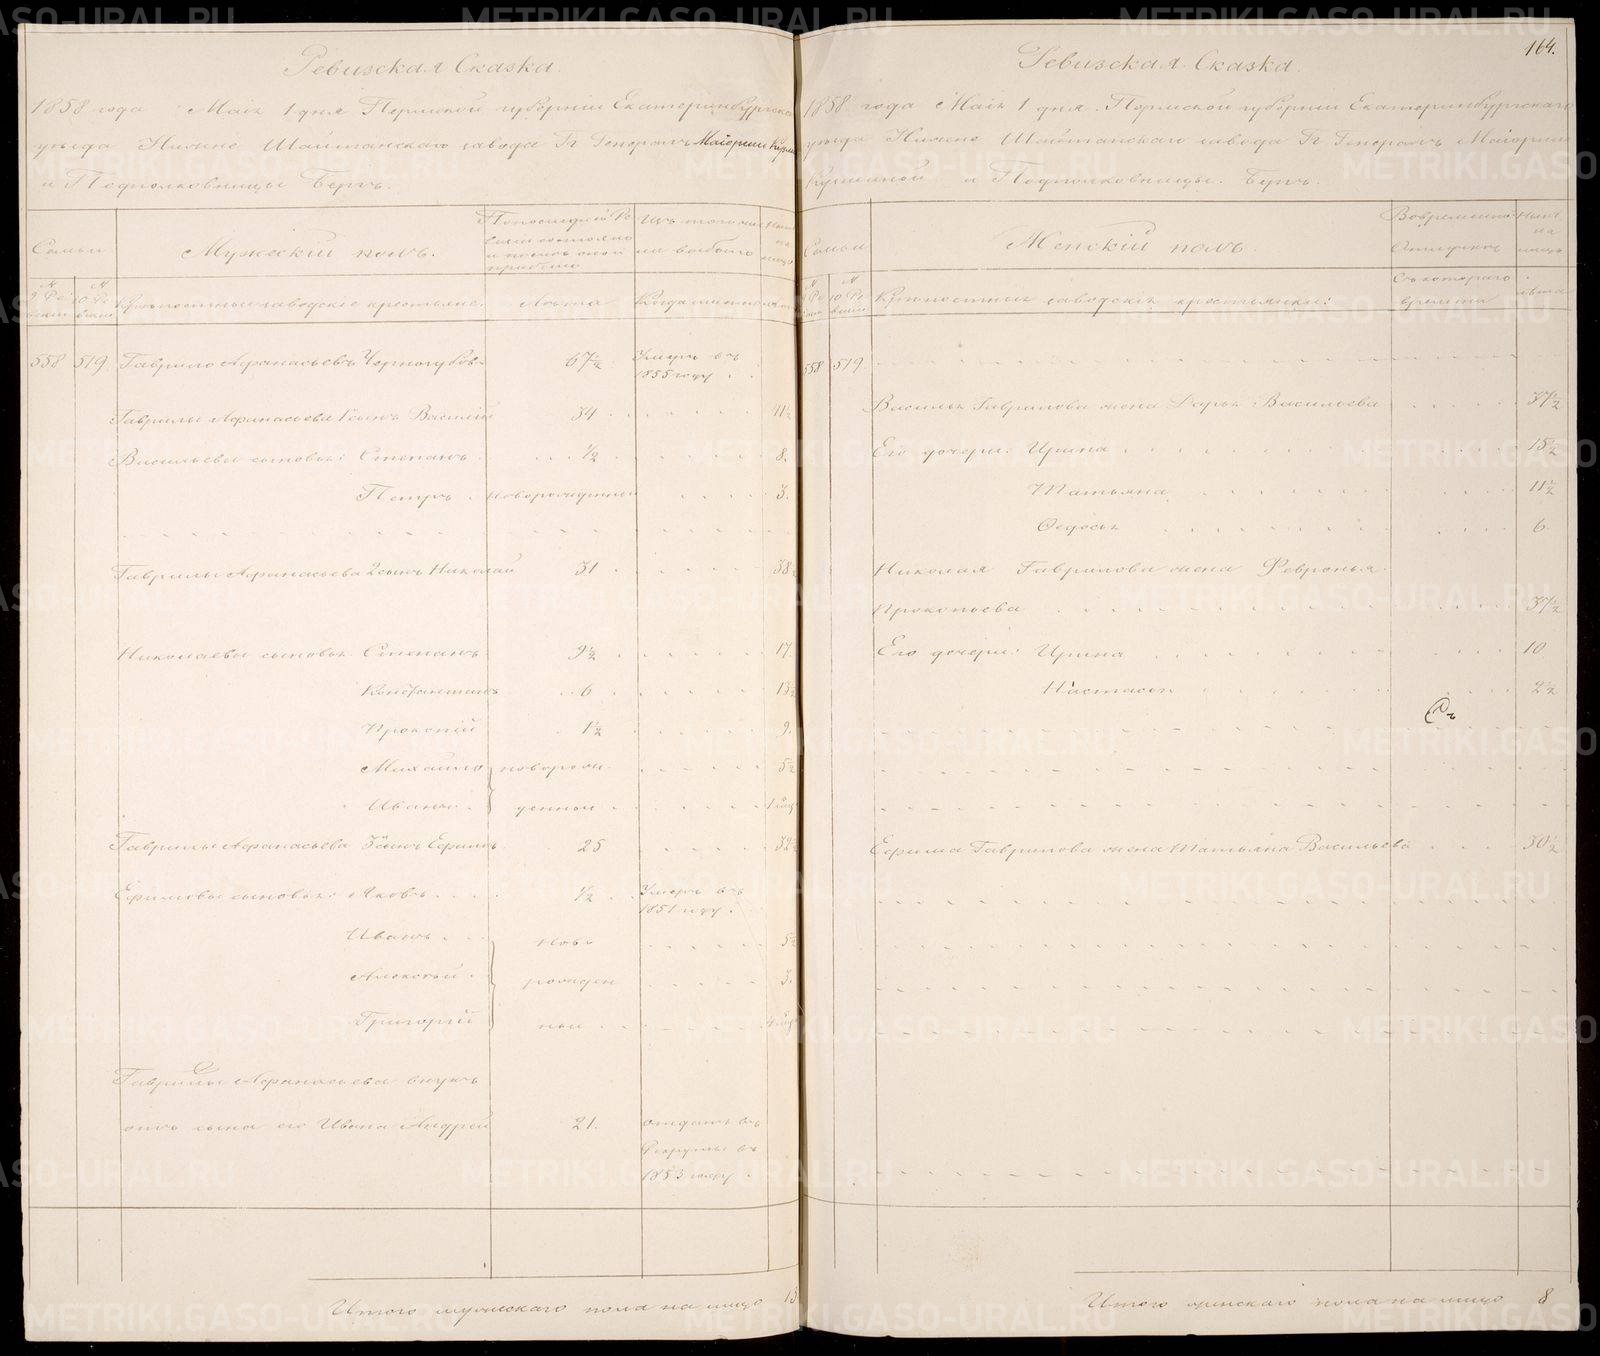 Ревизская Сказка.
1858 года Маія 1 дня Пермской губерніи Екатеринбургска
уѣзда Нижне Шайтанскаго завода Гг Генералъ Маіорши
и Подполковницы Бергъ.
Семьи
Мужескій полъ.
Изъ того числа выбыло
Крѣпостные заводскіе крестьяне.
Лѣта
Когда именно
558 519. Гаврило Афанасьевъ 67½ Умеръ въ
1855 году
Гаврилы Афанасьева 1 сынъ Василій 34 41½
Васильевы сыновья: Степанъ ½ 8.
Петръ новорожденный 3.
Гаврилы Афанасьева 2 сынъ Николай 31 38½
Николаевы сыновья Степанъ 9½ 17.
Константинъ 6 13½
Прокопій 1½ 9.
Михайло новорож 5½
Иванъ денные
Гаврилы Афанасьева 3й сынъ Ефимъ 25 32½
Ефимовы сыновья: Яковъ ½ Умеръ въ
1851 году
Иванъ ново 5½
Алексѣй рожден 3.
Григорій ные
Гаврилы Афанасьева внукъ
отъ сына его Ивана Андрей 21. отданъ въ
Рекруты въ
1853 году
Итого мужескаго пола на лицо 13
164.
Ревизская Сказка.
1858 года Маія 1 дня Пермской губерніи Екатеринбургскаго
уѣзда Нижне Шайтанскаго завода Гг Генералъ Маіорши
и Подполковницы Бергъ.
Семьи
Женскій полъ.
Во временной
Отлучкѣ
Съ котораго
времени
Крѣпостныя заводскія крестьянки:
лѣта
558 519
Василья Гаврилова жена Дарья Васильева 37½
Его дочери: Ирина 15½
Татьяна 11½
Федосья 6
Николая Гаврилова жена Февронья
Прокопьева 37½
Его дочери: Ирина 10
Настасья 2½
Ефима Гаврилова жена Татьяна Васильева 30½
Итого женскаго пола на лицо 8
METRIKI.GASO-URAL.RU